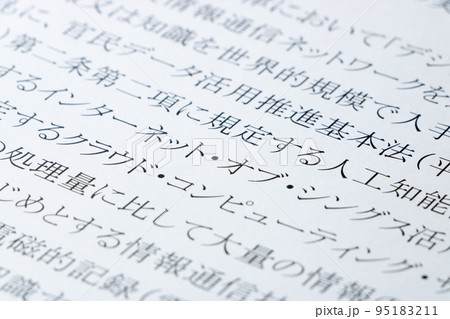 において「デジ
又は知識を世界的規模で入手
に、官民データ活用推進基本法(平
第二条第二項に規定する人工知能
するインターネット・オブ・シングス活
定するクラウド・コンピューティング・サ
の処理量に比して大量の情報の
じめとする情報通信技
電磁的記録(
pixta.jp - 95183211